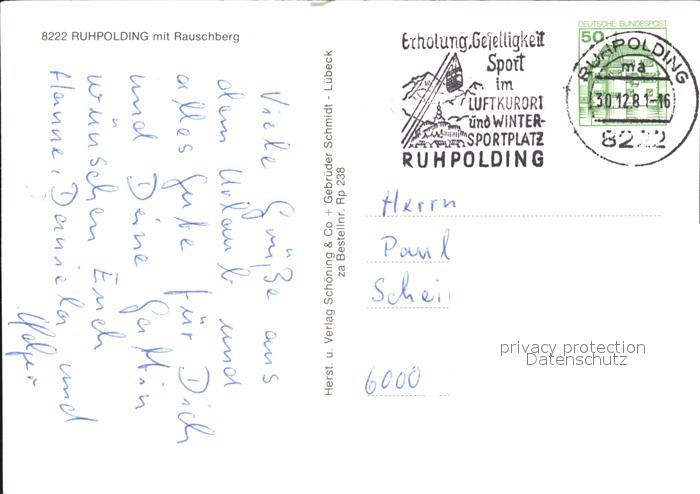 8222 RUHPOLDING mit Rauschberg
Viele Grüße aus
dem Urlaub und
alles Gute für Dich
und Deine Gattin
wünschen Euch
Hanne, Daniela und
Holger
Herst. u. Verlag Schöning & Co + Gebrüder Schmidt - Lübeck
za Bestellnr. Rp 238
Erholung, Geselligkeit
Sport
im
LUFTKURORT
und WINTER-
SPORTPLATZ
RUHPOLDING
DEUTSCHE BUNDESPOST
50
RUHPOLDING
ma
30.12.81-16
8222
Herrn
Paul
Schei
privacy protection
Datenschutz
6000